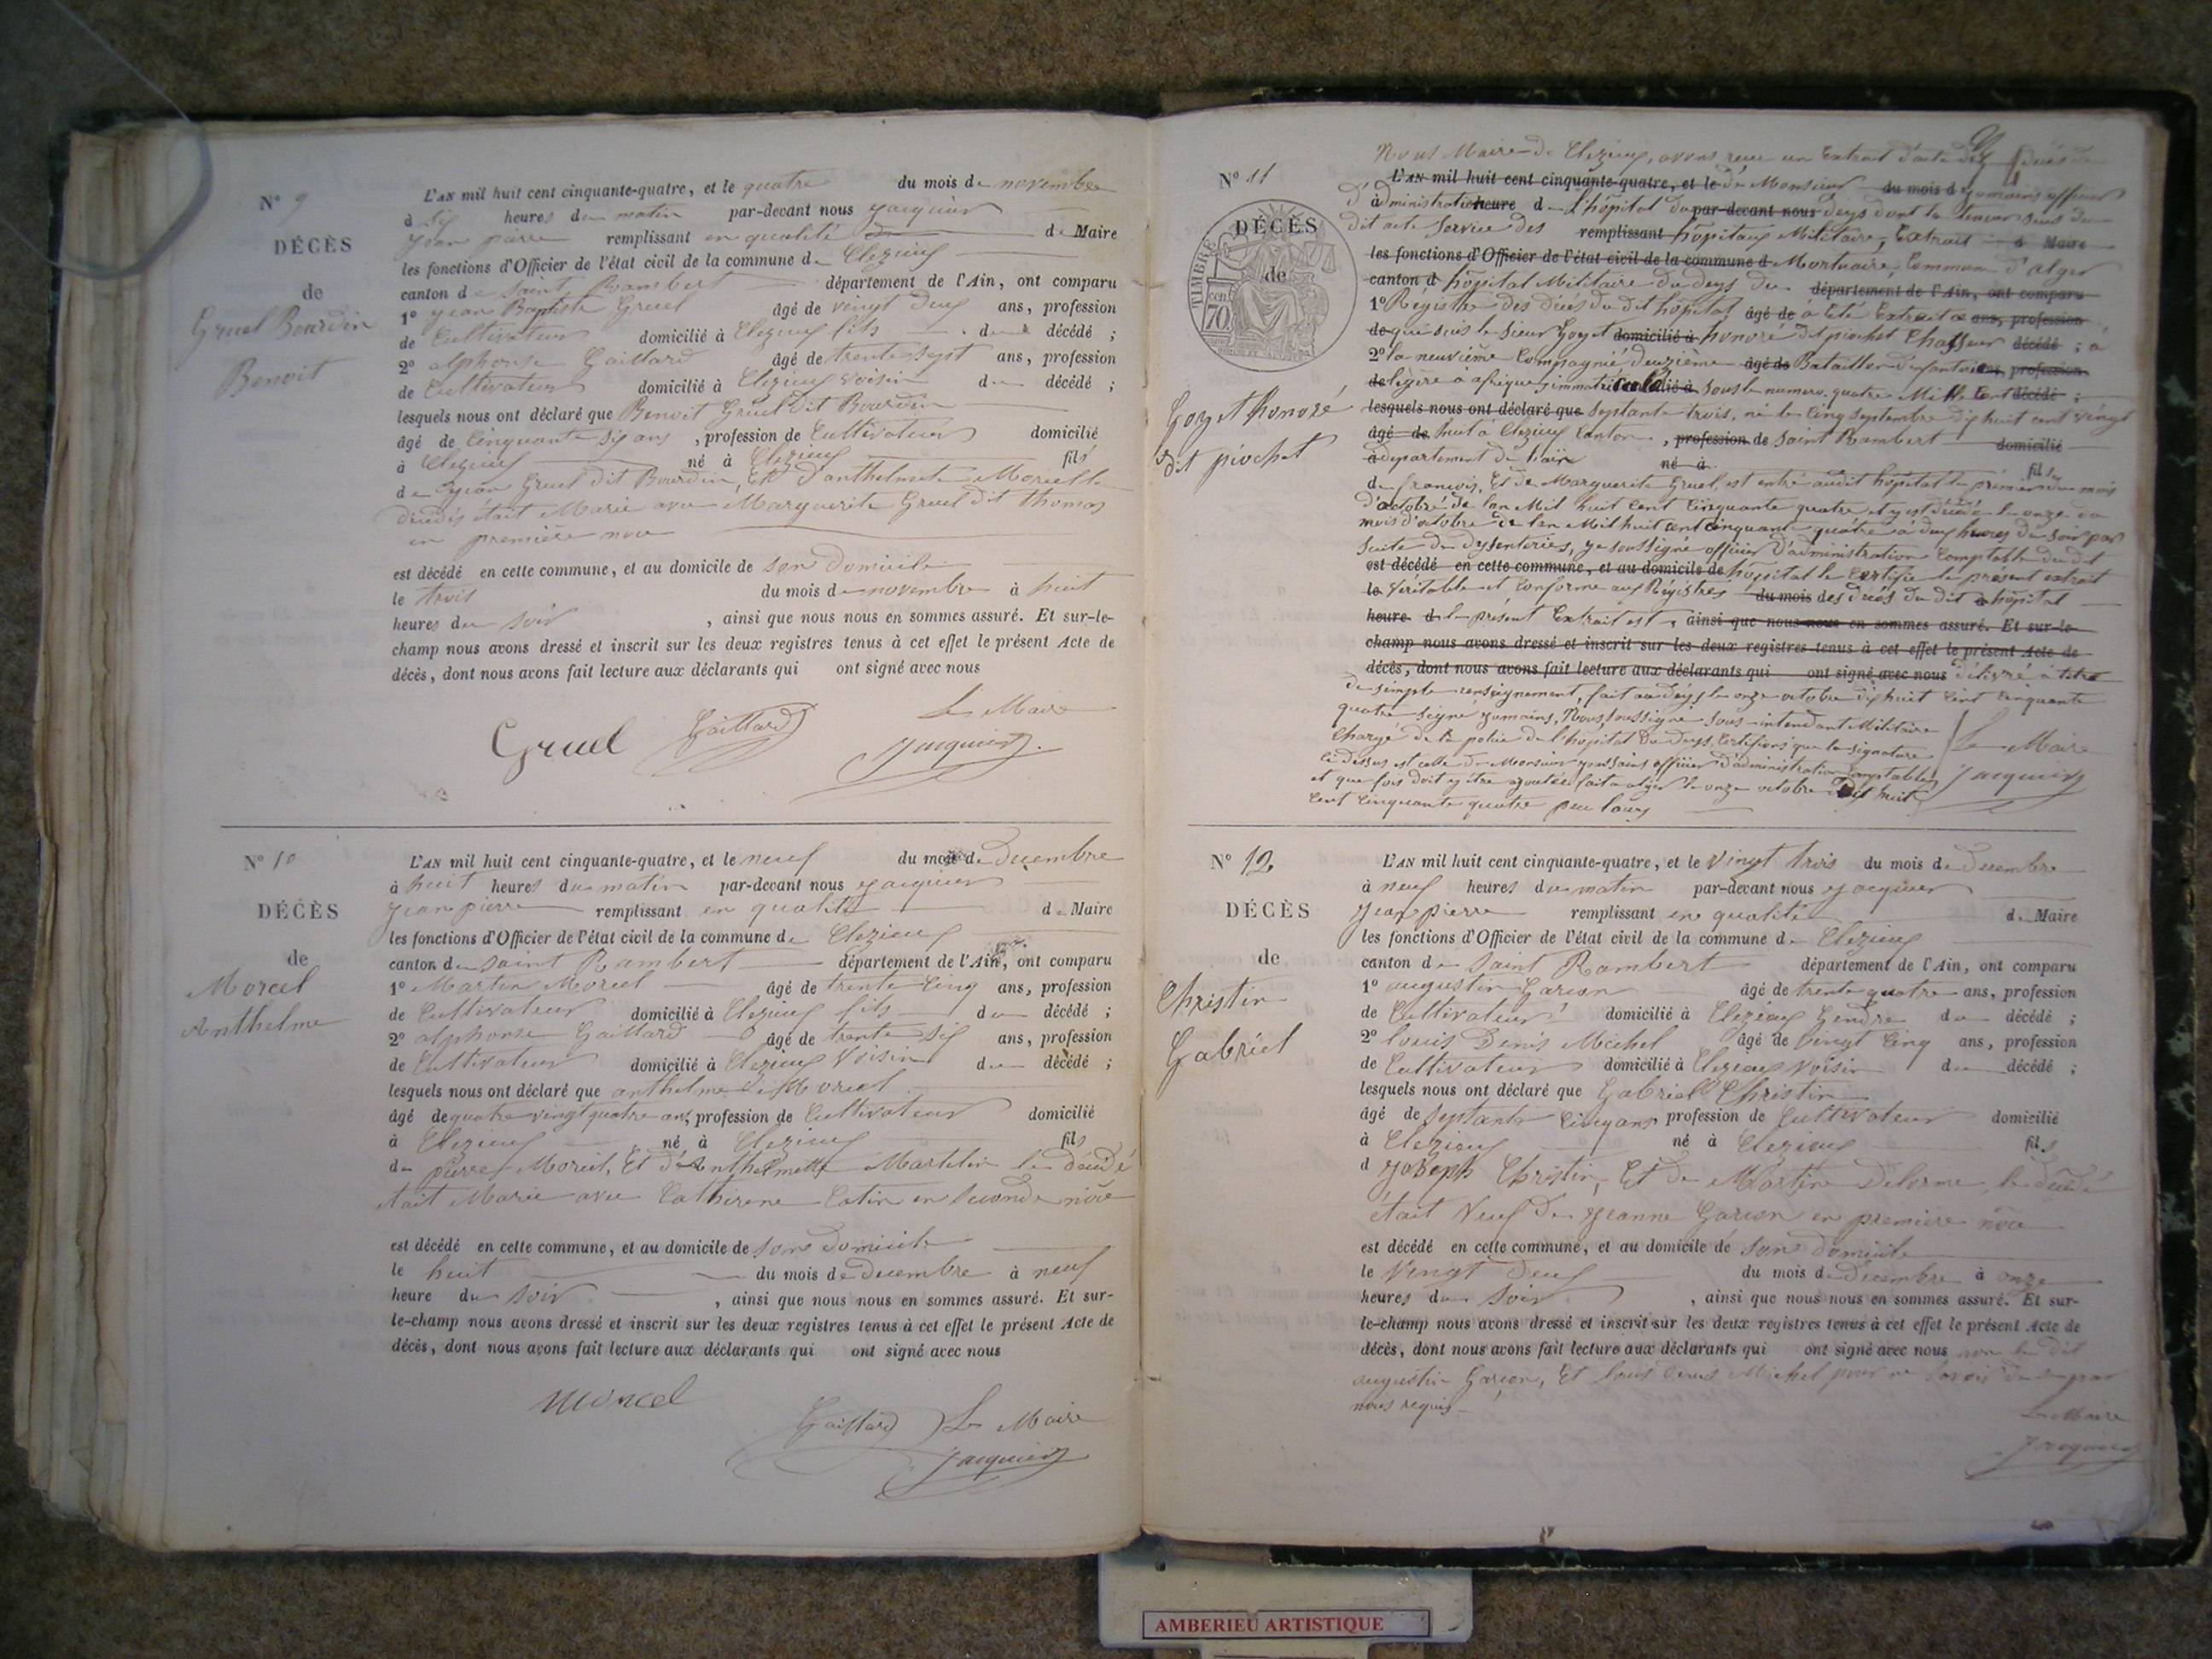 N° 9
DÉCÈS
de
Gruel Bourdin
Benoit
L'AN mil huit cent cinquante-quatre, et le quatre du mois de novembre
à six heures du matin par-devant nous Jacquier
Jean pierre remplissant en qualité de Maire
les fonctions d'Officier de l'état civil de la commune de Clezieux
canton de Saint Rambert département de l'Ain, ont comparu
1° Jean Baptiste Gruel âgé de vingt deux ans, profession
de Cultivateur domicilié à Clezieux fils du décédé ;
2° alphonse Gaillard âgé de trente sept ans, profession
de Cultivateur domicilié à Clezieux voisin du décédé ;
lesquels nous ont déclaré que Benoit Gruel dit Bourdin
âgé de Cinquante six ans, profession de Cultivateur domicilié
à Clezieux né à Clezieux fils
de Jean Gruel dit Bourdin, Et d'anthelmette Morcel le
décédés était Marié avec Marguerite Gruel dit thomas
en première noce
est décédé en cette commune, et au domicile de son domicile
le trois du mois de novembre à huit
heures du soir, ainsi que nous nous en sommes assuré. Et sur-le-
champ nous avons dressé et inscrit sur les deux registres tenus à cet effet le présent Acte de
décès, dont nous avons fait lecture aux déclarants qui ont signé avec nous
Gruel Gaillard Le Maire
Jacquier
N° 10
DÉCÈS
de
Morcel
Anthelme
L'AN mil huit cent cinquante-quatre, et le neuf du mois de Decembre
à huit heures du matin par-devant nous Jacquier
Jean pierre remplissant en qualité de Maire
les fonctions d'Officier de l'état civil de la commune de Clezieux
canton de Saint Rambert département de l'Ain, ont comparu
1° Martin Morcel âgé de trente Cinq ans, profession
de Cultivateur domicilié à Clezieux fils du décédé ;
2° alphonse Gaillard âgé de trente six ans, profession
de Cultivateur domicilié à Clezieux Voisin du décédé ;
lesquels nous ont déclaré que anthelme Morcel
âgé de quatre vingt quatre ans, profession de Cultivateur domicilié
à Clezieux né à Clezieux fils
de pierre Morcel, Et d'Anthelmette Martelin le décédé
était Marié avec Catherine Cotin en seconde noce
est décédé en cette commune, et au domicile de son domicile
le huit du mois de Decembre à neuf
heure du soir, ainsi que nous nous en sommes assuré. Et sur-
le-champ nous avons dressé et inscrit sur les deux registres tenus à cet effet le présent Acte de
décès, dont nous avons fait lecture aux déclarants qui ont signé avec nous
Morcel
Gaillard Le Maire
Jacquier
N° 11
DÉCÈS
de
TIMBRE
70 cent
Goyet honoré
dit piochet
Nous Maire de Clezieux, avons reçu un Extrait d'acte de
L'AN mil huit cent cinquante-quatre, et le de Monsieur du mois d officier
D'administration heure d l'hôpital du par-devant nous deys dont la teneur suis du
dit acte Service des remplissant hôpitaux Militaire, Extrait d Maire
les fonctions d'Officier de l'état civil de la commune d Mortuaire, Commune d'alger
canton d hôpital Militaire du deys du département de l'Ain, ont comparu
1° Registre des décès du dit hôpital âgé de a été Extrait ce ans, profession
de qui suis le sieur Goyet domicilié à honoré dit piochet Chasseur décédé ; a
2° la neuvième Compagnie deuxième âgé de Bataillon d'infanterie ans, profession
de légère d'afrique immatriculé domicilié à sous le numero quatre Mille Cent décédé ;
lesquels nous ont déclaré que septante trois, né le Cinq septembre dix huit cent vingt
âgé de huit à Clezieux Canton, profession de Saint Rambert domicilié
à departement de l'ain né à fils
de françois, Et de Marguerite Gruel, est entré audit hôpital le premier du mois
d'octobre de l'an Mil huit Cent Cinquante quatre et y est décédé le onze du
mois d'octobre de l'an Mil huit cent cinquante quatre à deux heures du soir par
suite de dyssenteries, je soussigné officier d'administration Comptable du dit
est décédé en cette commune, et au domicile de hôpital le certifie le présent extrait
le Véritable et Conforme aux Régistres du mois des décès du dit à hôpital
heure d le présent Extrait est, ainsi que nous nous en sommes assuré. Et sur-le
champ nous avons dressé et inscrit sur les deux registres tenus à cet effet le présent Acte de
décès, dont nous avons fait lecture aux déclarants qui ont signé avec nous délivré à titre
de simple renseignement, fait au deys le onze octobre dix huit Cent Cinquante
quatre signé, Nous soussigné sous-intendant Militaire
Chargé de la police de l'hôpital du deys, Certifions que la signature
ci dessus est celle de Monsieur officier d'administration Comptable
et que fois doit y être ajoutée fait a alger le onze octobre dix huit
Cent Cinquante quatre
Le Maire
Jacquier
N° 12
DÉCÈS
de
Christin
Gabriel
L'AN mil huit cent cinquante-quatre, et le Vingt trois du mois de Decembre
à neuf heures du matin par-devant nous Jacquier
Jean pierre remplissant en qualité de Maire
les fonctions d'Officier de l'état civil de la commune de Clezieux
canton de Saint Rambert département de l'Ain, ont comparu
1° augustin Garion âgé de trente quatre ans, profession
de Cultivateur domicilié à Clezieux Gendre du décédé ;
2° louis Denis Michel âgé de Vingt Cinq ans, profession
de Cultivateur domicilié à Clezieux Voisin du décédé ;
lesquels nous ont déclaré que Gabriel Christin
âgé de septante Cinq ans profession de Cultivateur domicilié
à Clezieux né à Clezieux fils
d Joseph Christin, Et de Martine Delorme, le décédé
était Veuf de Jeanne Garion en première noce
est décédé en cette commune, et au domicile de son domicile
le Vingt Deux du mois de Decembre à onze
heures du Soir, ainsi que nous nous en sommes assuré. Et sur-
le-champ nous avons dressé et inscrit sur les deux registres tenus à cet effet le présent Acte de
décès, dont nous avons fait lecture aux déclarants qui ont signé avec nous non le dit
augustin Garion, Et louis Denis Michel pour ne savoir de par
nous requis
Le Maire
Jacquier
AMBERIEU ARTISTIQUE